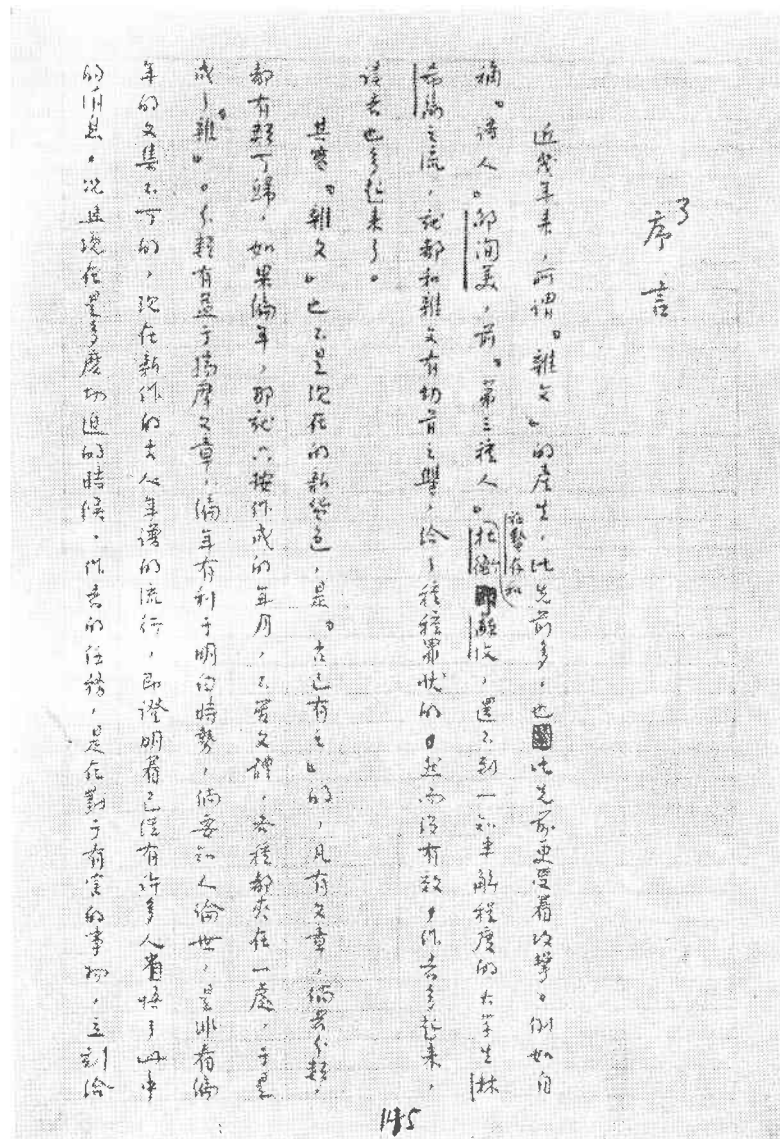 序言
近幾年来,所謂『雜文』的產生,比先前多,也比先前更受着攻擊。例如自
稱『詩人』邵洵美,前『第三種人』施蟄存和杜衡即蘇汶,還不到一知半解程度的大学生林
希雋之流,就都和雜文有切骨之讐,給了種種罪狀的。然而沒有效,作者多起来,
讀者也多起来了。
其實『雜文』也不是現在的新貨色,是『古已有之』的,凡有文章,倘若分類,
都有類可歸,如果編年,那就只按作成的年月,不管文體,各種都夾在一處,于是
成了『雜』。分類有益于揣摩文章,編年有利于明白時勢,倘要知人論世,是非看編
年的文集不可的,現在新作的古人年譜的流行,即證明着已經有許多人省悟了此中
的消息。况且現在是多麽切迫的時候,作者的任務,是在對于有害的事物,立刻給
145